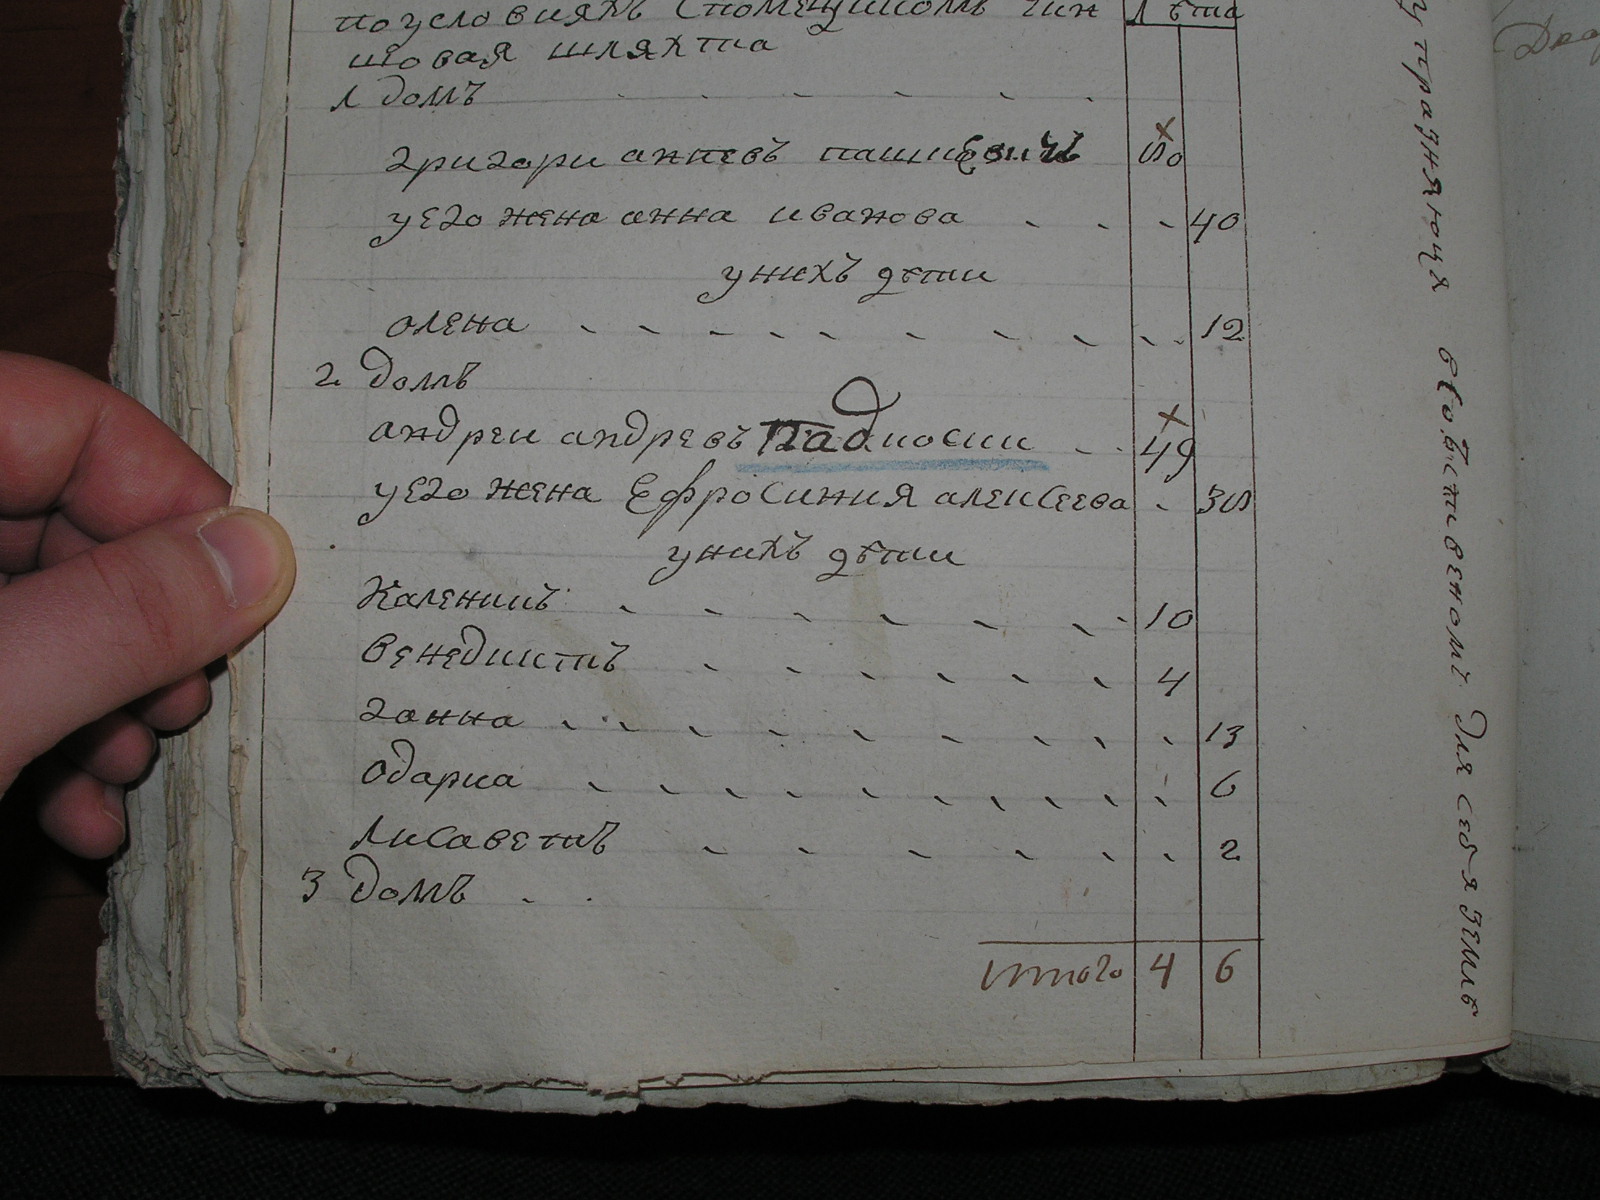 по условиямъ с помещикомъ чин лѣта
шовая шляхта
1 домъ
григори антевъ пашкевичъ 50
у его жена анна иванова 40
у нихъ дѣти
олена 12
2 домъ
андреи андревъ Падкосии 49
у его жена Ефросиния алексеева 35
у нихъ дѣти
Каленикъ 10
венедиктъ 4
ганна 13
одарка 6
лисаветъ 2
3 домъ
итого 4 6
упражняюця в собственомъ для себя земле